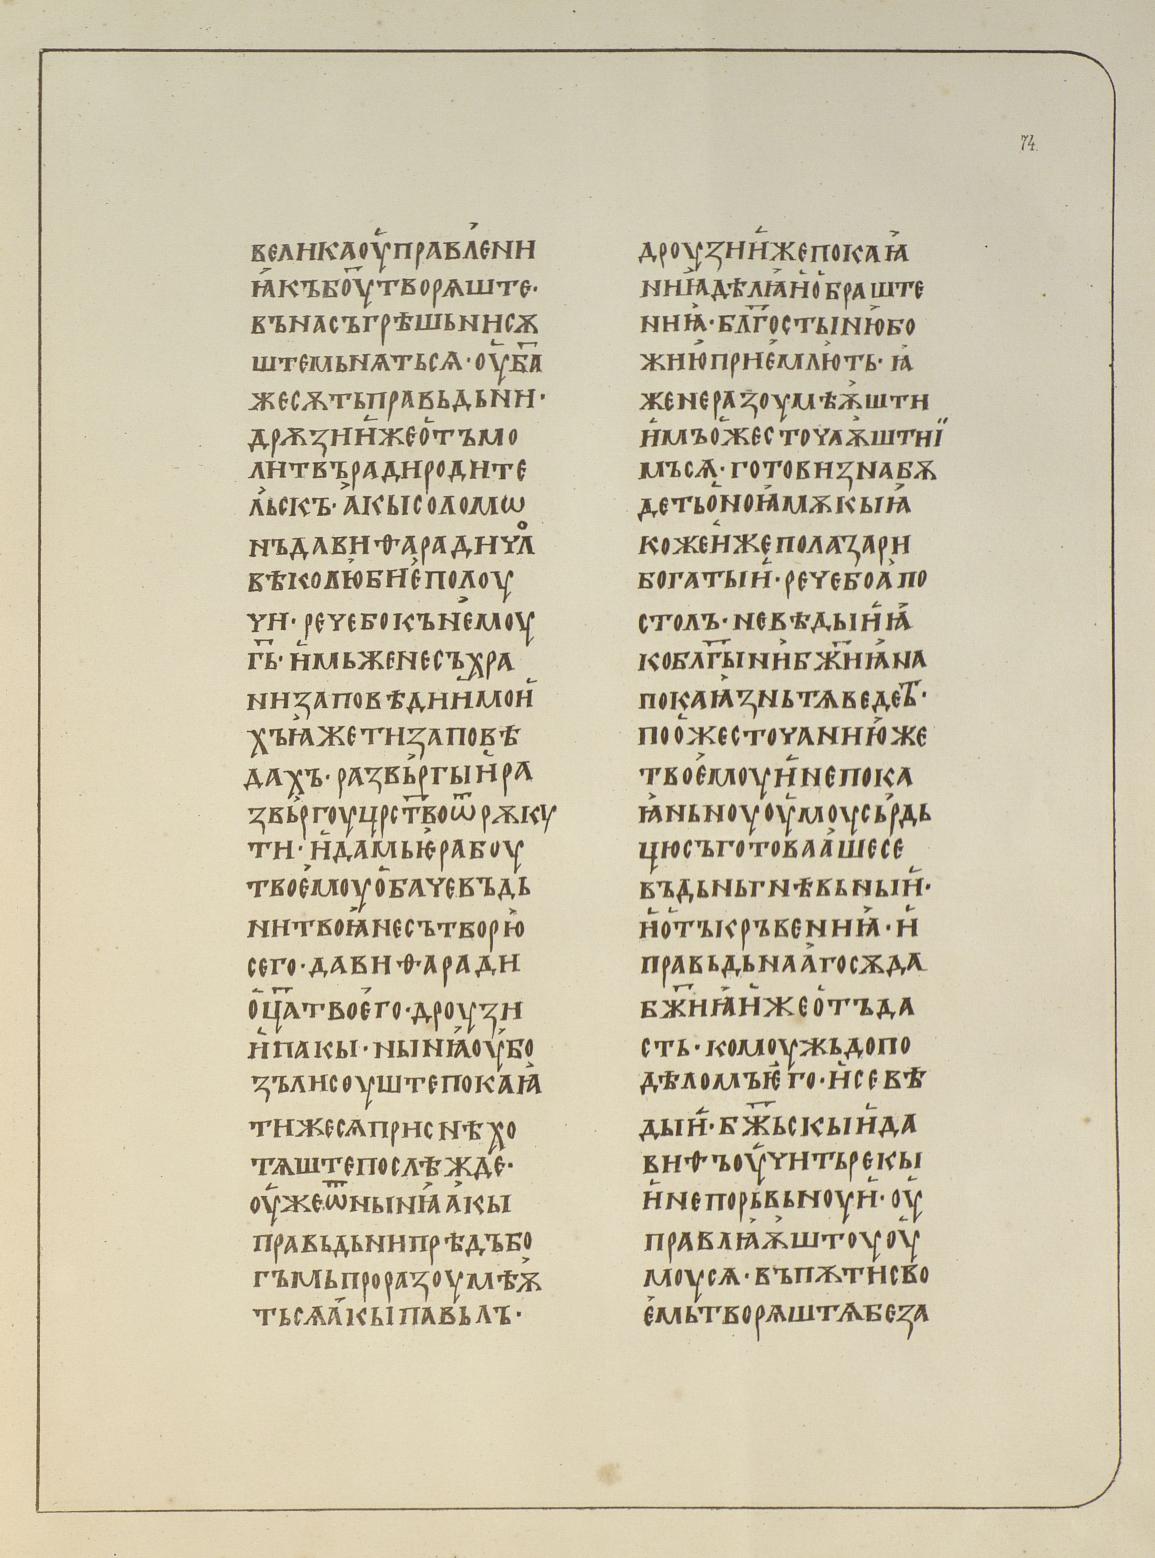 74.
велика оу҆правл҄ени
ꙗ҆къ бо҃у творѧште·
вънасъгрѣшьнисѫ
штемьнѧтьсѧ· оу҆б҃а
жесѫтьправьдьни·
дрѫзии҆жео҆тъмо
литвърадиродите
л҄ьскъ· а҆кысоломѡ
нъдавиѳарадичл҇о
вѣкол҄юбие҆полоу
чи· речебокъне҆моу
г҃ь· и҆мьженесъхра
низаповѣдиимои҆
хъꙗ҆жетизаповѣ
дахъ· развьргыи҆ра
звьргоуцр҃ствоѿрѫкꙋ
ти· и҆дамьѥ҆рабоу
твоемоуо҆бачевъдь
нитвоꙗ҆несътвор҄ю
сего· давиѳаради
о҆ц҃атвоего· дроузи
и҆пакы· нын҄ꙗоу҆бо
зълисоуштепокаꙗ҆
тижесѧприснѣхо
тѧштепослѣжде·
оу҆жеѿнын҄ꙗа҆кы
правьдьнипрѣдъбо
гъмьпроразоумѣѭ
тьсѧа҆кыпавьлъ·
дроузии҆жепокаꙗ
ниꙗдѣл҄ꙗи҆о҆браште
ниꙗ· бл҃гостын҄юбо
жиюприе҆мл҄ють· ꙗ҆
женеразоумѣѭшти
и҆мъо҆жесточаѭштиї
мъсѧ· готовизнабѫ
детьо҆ноꙗ҆мѫкыꙗ҆
кожеи҆жеполазари
богатыи҆· речебоа҆по
столъ· невѣдыи҆ꙗ҆
кобл҃гыни҆бж҃иꙗна
покаꙗ҆зньтѧведеть·
поо҆жесточаниюже
твоемоуи҆непока
ꙗ҆ньноуоу҆моусьрдь
цюсъготоваа҆шесе
въдьньгнѣвьныи҆·
и҆о҆тъкръвениꙗ· и҆
правьдьнаа҆госѫда
бж҃иꙗи҆жео҆тъда
сть· комоужьдопо
дѣломъѥ҆го· и҆севѣ
дыи҆· бж҃ьскыи҆да
виѳъоу҆читьрекы
и҆непорьвьноуи҆· оу҆
правл҄ꙗѭштоуоу҆
моусѧ· въпѫтисво
е҆мьтворѧштѧбеза